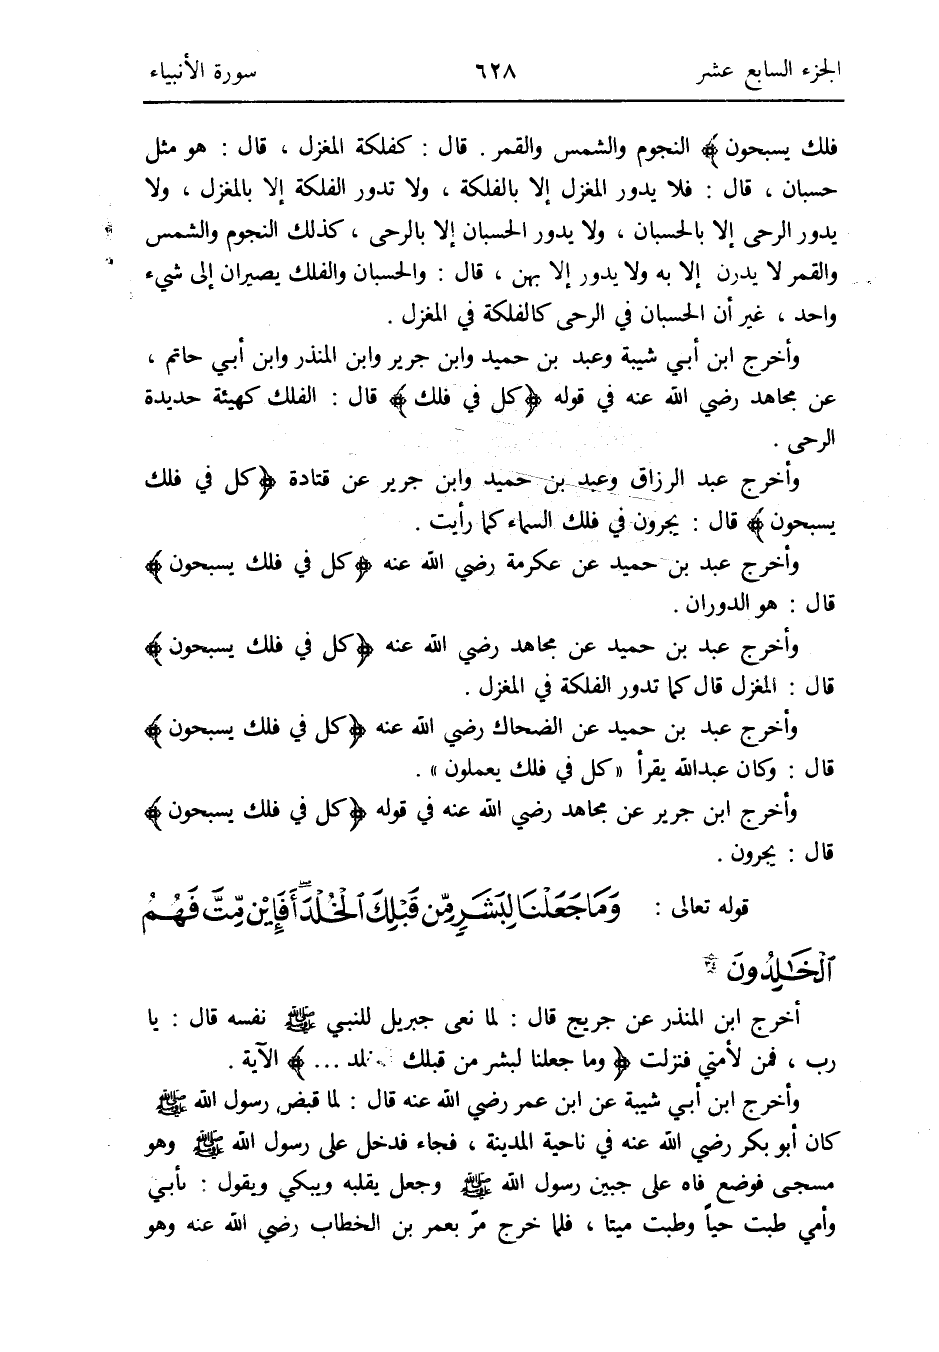 الجزء السابع عشر ٦٢٨ سورة الأنبياء
فلك يسبحون﴾ النجوم والشمس والقمر . قال : كفلكة المغزل ، قال : هو مثل
حسبان ، قال : فلا يدور المغزل إلا بالفلكة ، ولا تدور الفلكة إلا بالمغزل ، ولا
يدور الرحى إلا بالحسبان ، ولا يدور الحسبان إلا بالرحى ، كذلك النجوم والشمس
والقمر لا يدرن إلا به ولا يدور إلا بهن ، قال : والحسبان والفلك يصيران إلى شيء
واحد ، غير أن الحسبان في الرحى كالفلكة في المغزل .
وأخرج ابن أبي شيبة وعبد بن حميد وابن جرير وابن المنذر وابن أبي حاتم ،
عن مجاهد رضي الله عنه في قوله ﴿كل في فلك﴾ قال : الفلك كهيئة حديدة
الرحى .
وأخرج عبد الرزاق وعبد بن حميد وابن جرير عن قتادة ﴿كل في فلك
يسبحون﴾ قال : يجرون في فلك السماء كما رأيت .
وأخرج عبد بن حميد عن عكرمة رضي الله عنه ﴿كل في فلك يسبحون﴾
قال : هو الدوران .
وأخرج عبد بن حميد عن مجاهد رضي الله عنه ﴿كل في فلك يسبحون﴾
قال : المغزل قال كما تدور الفلكة في المغزل .
وأخرج عبد بن حميد عن الضحاك رضي الله عنه ﴿كل في فلك يسبحون﴾
قال : وكان عبدالله يقرأ «كل في فلك يعملون» .
وأخرج ابن جرير عن مجاهد رضي الله عنه في قوله ﴿كل في فلك يسبحون﴾
قال : يجرون .
قوله تعالى : وَمَا جَعَلْنَا لِبَشَرٍ مِّن قَبْلِكَ ٱلْخُلْدَ ۖ أَفَإِيْن مِّتَّ فَهُمُ
ٱلْخَٰلِدُونَ ٣٤
أخرج ابن المنذر عن جريج قال : لما نعى جبريل للنبي ﷺ نفسه قال : يا
رب ، فمن لأمتي فنزلت ﴿ وما جعلنا لبشر من قبلك ... ﴾ الآية .
وأخرج ابن أبي شيبة عن ابن عمر رضي الله عنه قال : لما قبض رسول الله ﷺ
كان أبو بكر رضي الله عنه في ناحية المدينة ، فجاء فدخل على رسول الله ﷺ وهو
مسجى فوضع فاه على جبين رسول الله ﷺ وجعل يقلبه ويبكي ويقول : بأبي
وأمي طبت حياً وطبت ميتا ، فلما خرج مرّ بعمر بن الخطاب رضي الله عنه وهو